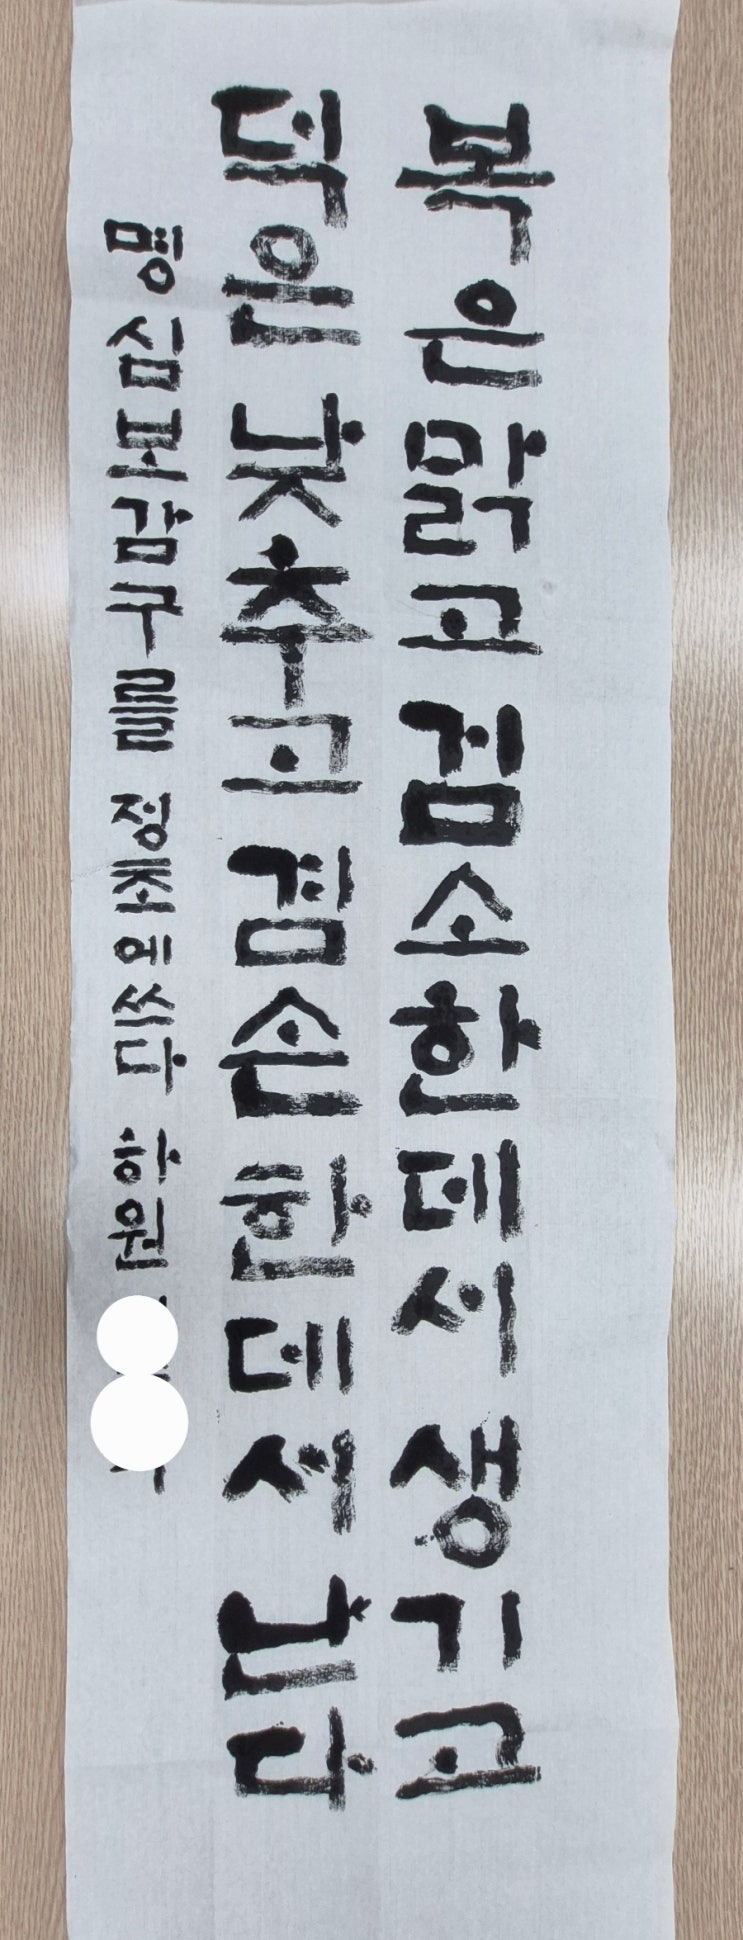 복은 맑고 검소한데서 생기고
덕은 낮추고 겸손한데서 난다
명심보감구를 정초에쓰다 하원